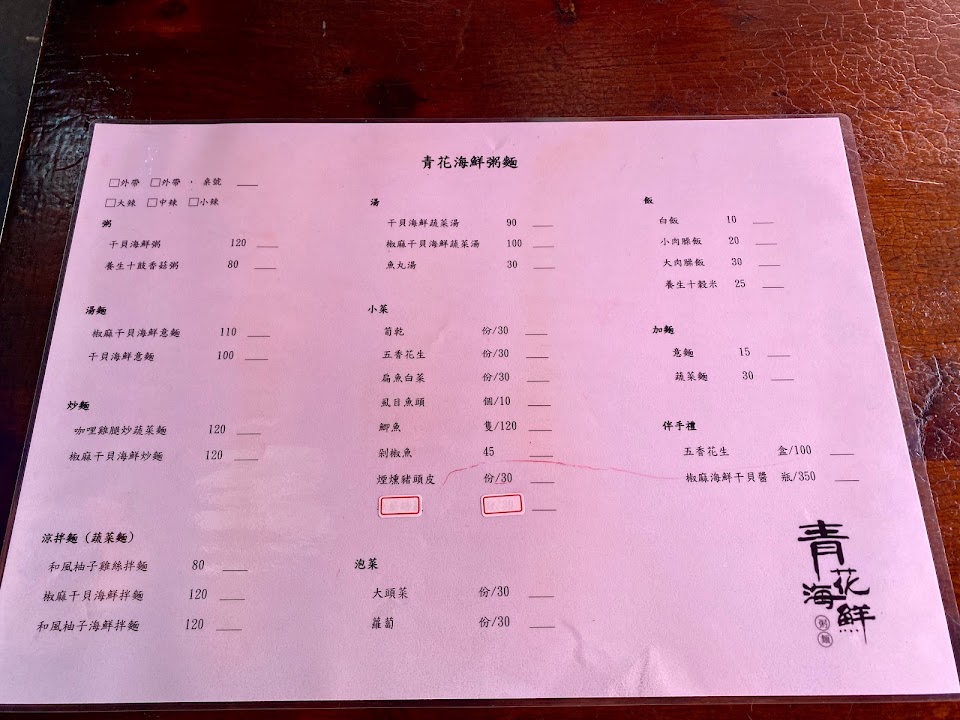 青花海鮮粥麵
□外帶 □外帶 · 桌號 ___
□大辣 □中辣 □小辣
粥
干貝海鮮粥 120 ___
養生十鼓香菇粥 80 ___
湯麵
椒麻干貝海鮮意麵 110 ___
干貝海鮮意麵 100 ___
炒麵
咖哩雞腿炒蔬菜麵 120 ___
椒麻干貝海鮮炒麵 120 ___
涼拌麵 (蔬菜麵)
和風柚子雞絲拌麵 80 ___
椒麻干貝海鮮拌麵 120 ___
和風柚子海鮮拌麵 120 ___
湯
干貝海鮮蔬菜湯 90 ___
椒麻干貝海鮮蔬菜湯 100 ___
魚丸湯 30 ___
小菜
筍乾 份/30 ___
五香花生 份/30 ___
扁魚白菜 份/30 ___
虱目魚頭 個/10 ___
鯽魚 隻/120 ___
剁椒魚 45 ___
煙燻豬頭皮 份/30 ___
泡菜
大頭菜 份/30 ___
蘿蔔 份/30 ___
飯
白飯 10 ___
小肉臊飯 20 ___
大肉臊飯 30 ___
養生十穀米 25 ___
加麵
意麵 15 ___
蔬菜麵 30 ___
伴手禮
五香花生 盒/100 ___
椒麻海鮮干貝醬 瓶/350 ___
青花
海鮮
粥麵